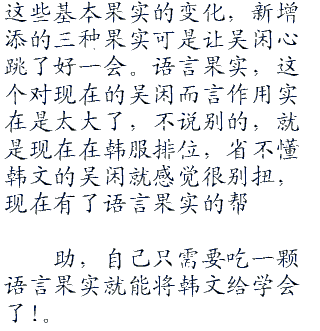 这些基本果实的变化，新增
添的三种果实可是让吴闲心
跳了好一会。语言果实，这
个对现在的吴闲而言作用实
在是太大了，不说别的，就
是现在在韩服排位，省不懂
韩文的吴闲就感觉很别扭，
现在有了语言果实的帮
助，自己只需要吃一颗
语言果实就能将韩文给学会
了！。